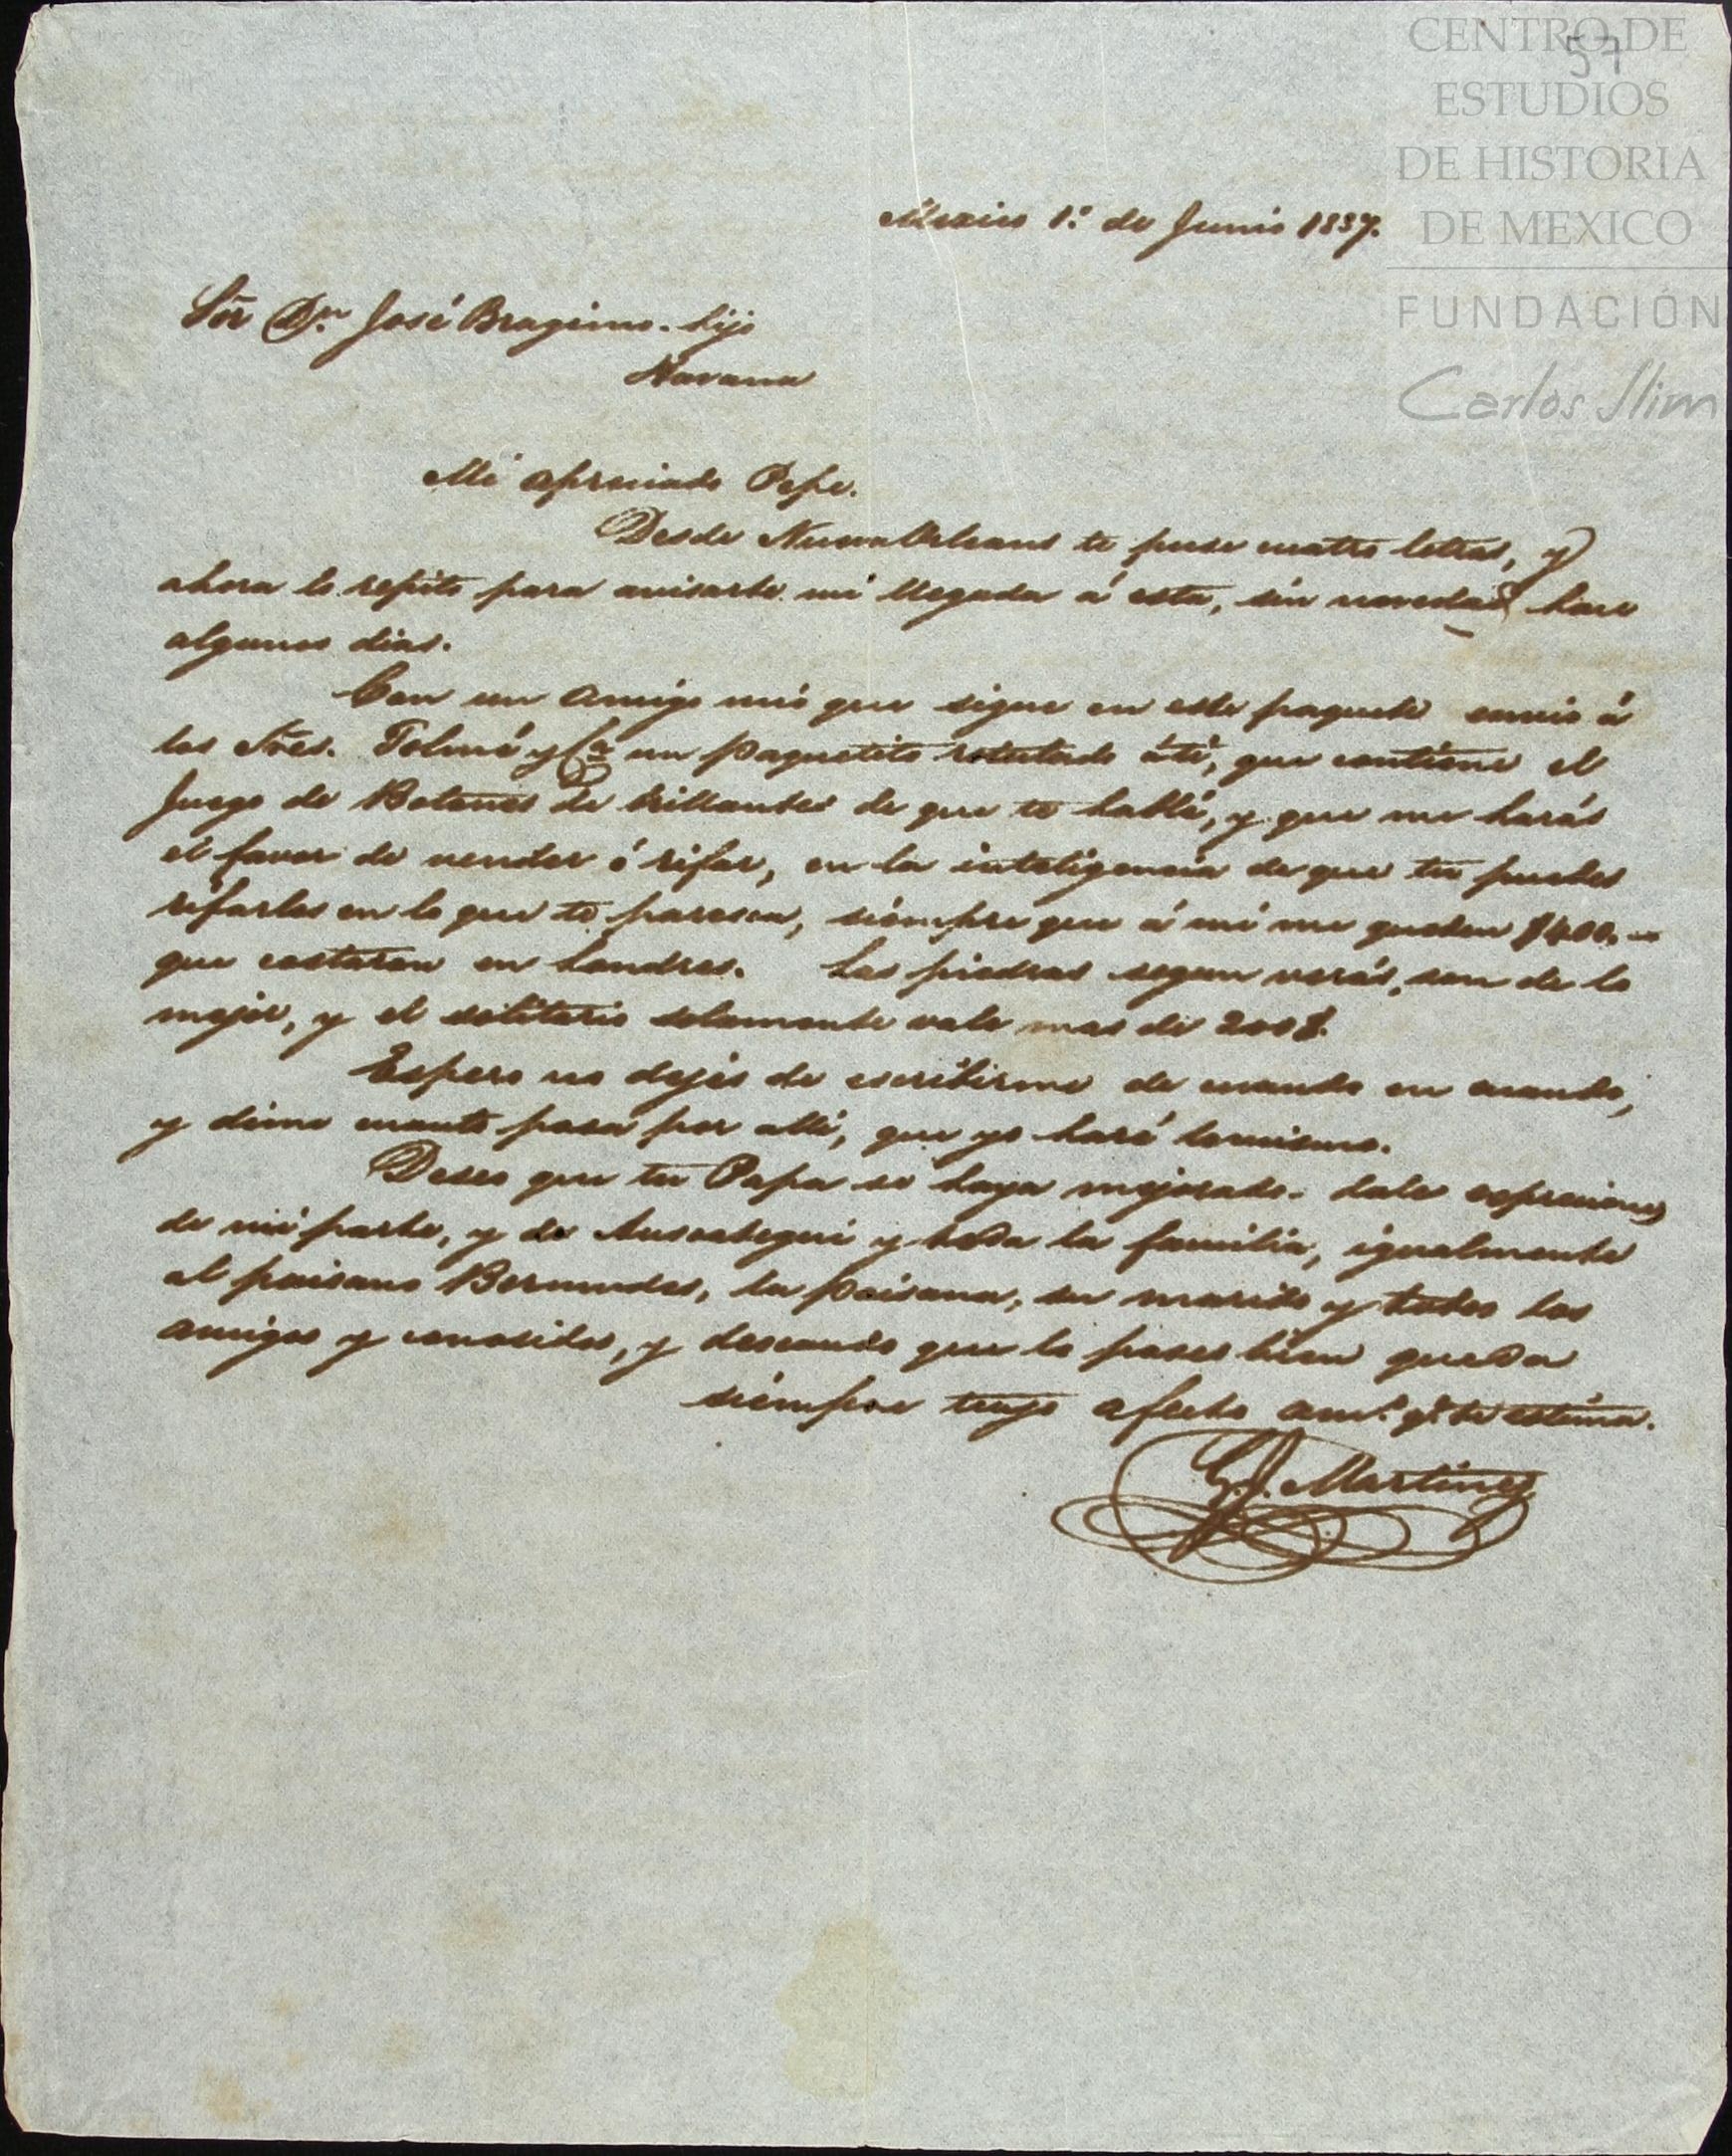 57
CENTRO DE
ESTUDIOS
DE HISTORIA
DE MEXICO
FUNDACIÓN
Carlos Slim
Mexico 1º de Junio 1837.
Sõr Dn José Bragimo. hijo
Havana
Mi apreciado Pepe.
Desde Nueva Orleans te puse cuatro letras, y
ahora lo repito para avisarte mi llegada á esta, sin novedad hace
algunos dias.
Con un amigo mio que sigue en este paquete envio á
los Sres. Tolmé y Ca un paquetito rotulado á ti, que contiene el
Juego de Botones de brillantes de que te hablé, y que me harás
el favor de vender ó rifar, en la inteligencia de que tu puedes
rifarlos en lo que te paresca, siémpre que á mi me queden $400.
que costaron en Londres. Las piedras segun verás, son de lo
mejor, y el solitario solamente vale mas de 200$.
Espero no dejes de escribirme de cuando en cuando,
y dime cuanto pasa por allí, que yo haré lo mismo.
Deseo que tu Papa se haya mejorado. dale espreciones
de mi parte, y de y toda la familia, igualmente
al paisano Bermudes, la paisana, su marido y todos los
amigos y conosidos, y deseando que lo pases bien queda
siémpre tuyo afecto amo qe te estima.
G. J. Martinez